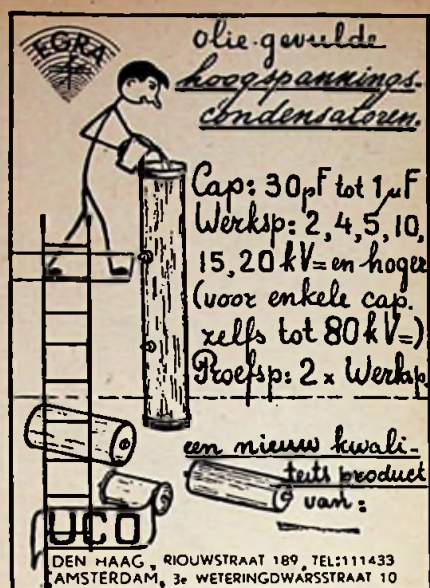 EGRA
olie-gevulde
hoogspannings-
condensatoren.
Cap: 30pF tot 1µF
Werksp: 2, 4, 5, 10,
15, 20 kV= en hoger
(voor enkele cap.
zelfs tot 80 kV=)
Proefsp: 2 x Werksp.
een nieuw kwali-
teits product
van:
UCO
DEN HAAG, RIOUWSTRAAT 189, TEL:111433
AMSTERDAM, 3e WETERINGDWARSSTRAAT 10